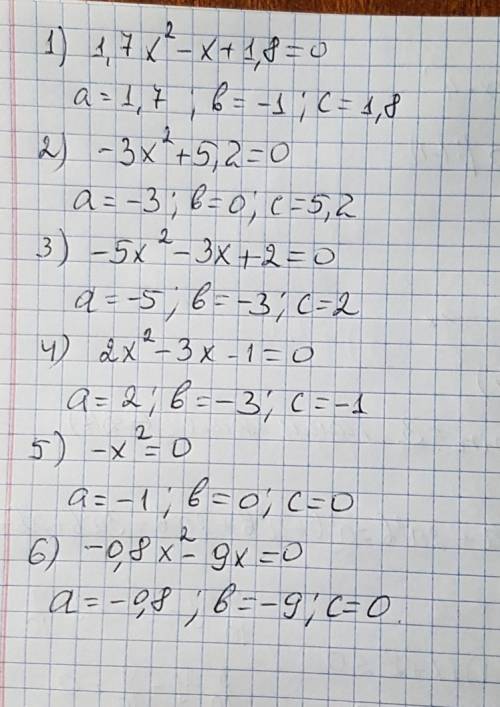 1) 1,7x² - x + 1,8 = 0
a = 1,7 ; в = -1 ; c = 1,8
2) -3x² + 5,2 = 0
a = -3 ; в = 0 ; c = 5,2
3) -5x² - 3x + 2 = 0
a = -5 ; в = -3 ; c = 2
4) 2x² - 3x - 1 = 0
a = 2 ; в = -3 ; c = -1
5) -x² = 0
a = -1 ; в = 0 ; c = 0
6) -0,8x² - 9x = 0
a = -0,8 ; в = -9 ; c = 0.